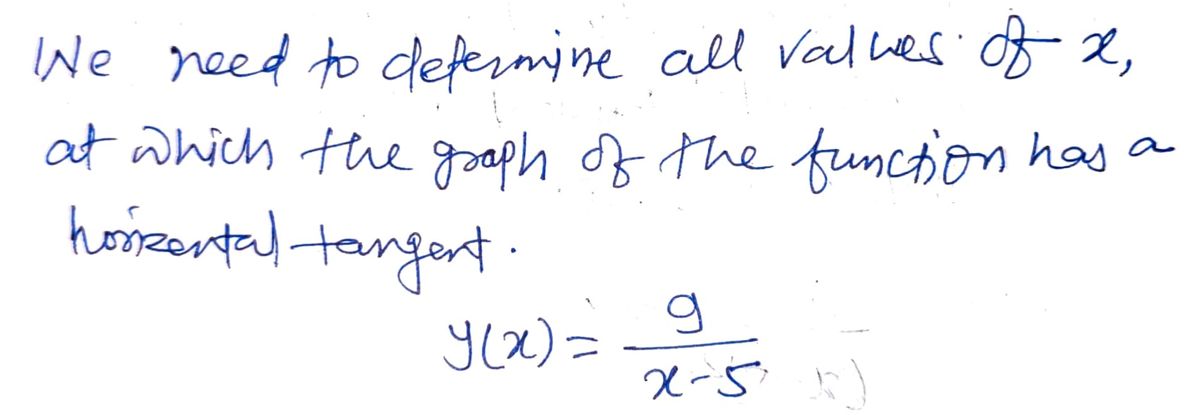 We need to determine all values of x,
at which the graph of the function has a
horizental tangent.
y(x) = 9/(x-5)